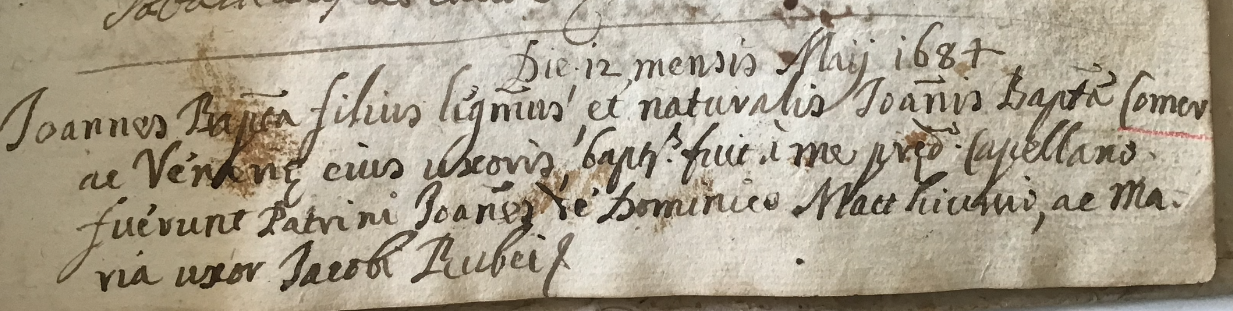 Die 12 mensis Maij 1684
Joannes Bapta filius ligmus, et naturalis Joanis Bapta Comer
ac eius uxoris, bapts. fuit à me pred. Capellano.
fuerunt Patrini Joanes de Dominico ac Ma-
ria uxor Jacobi Rubei